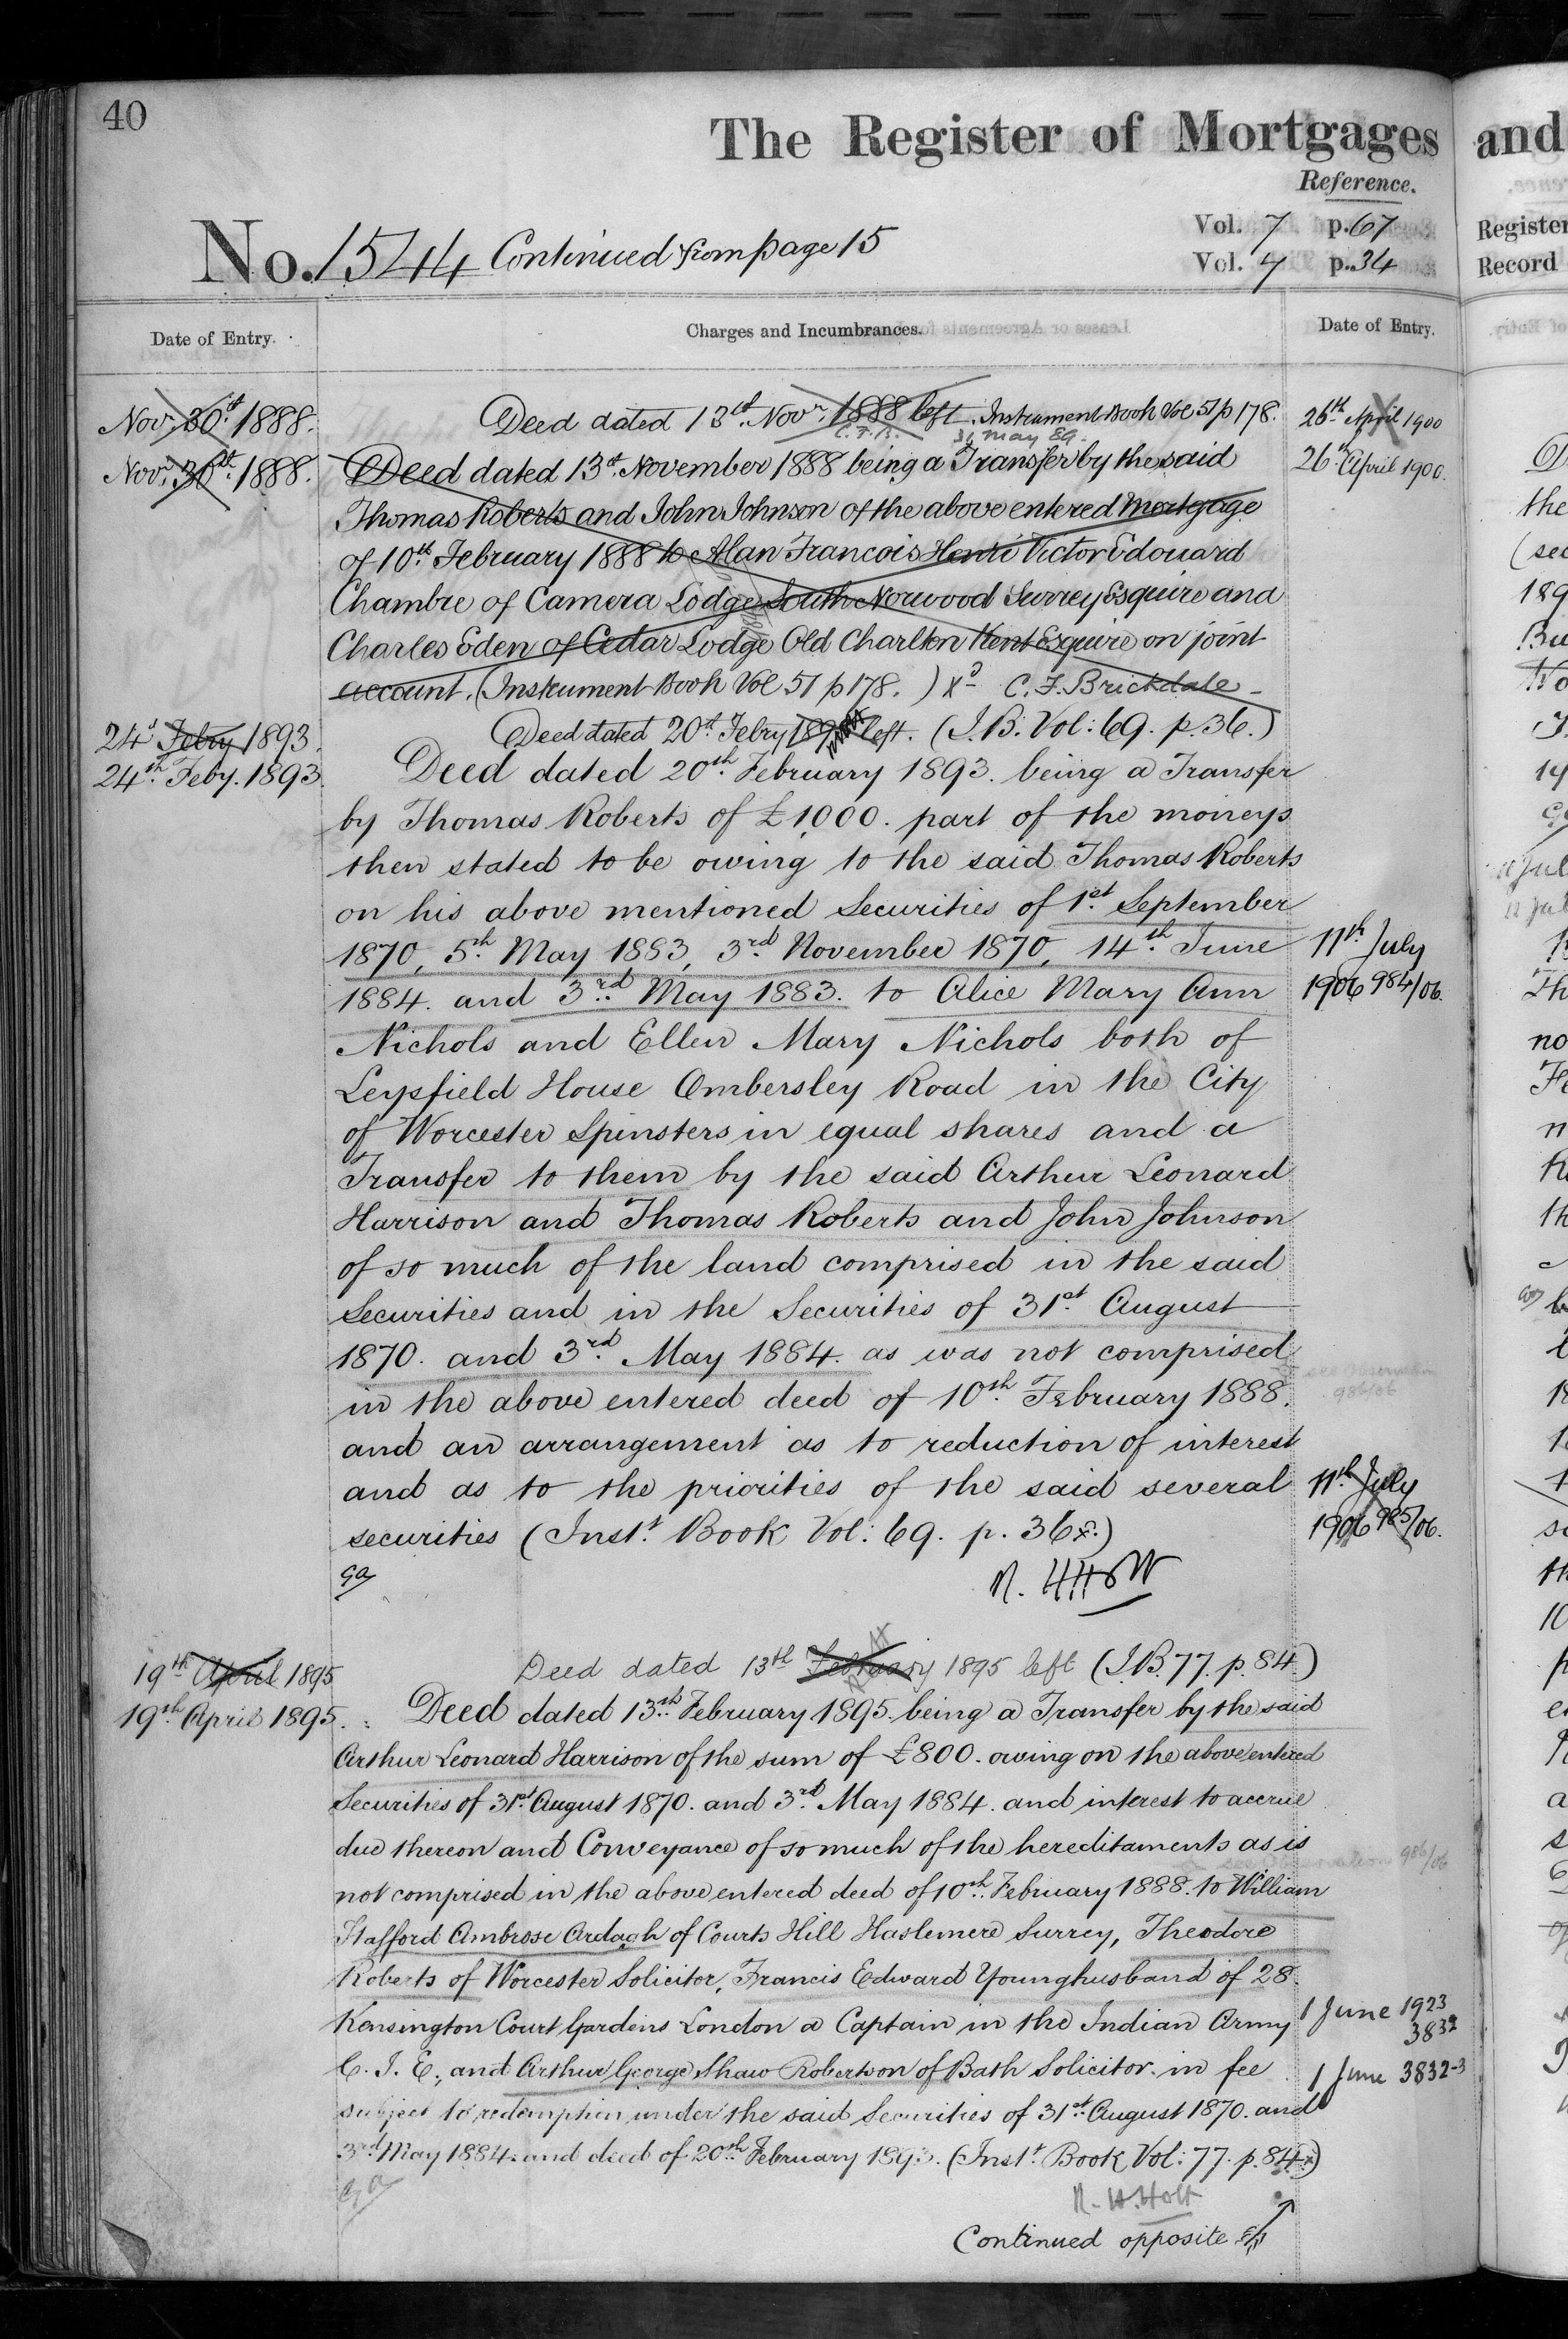 40
The Register of Mortgages and
Reference.
Vol. 7 p. 67 Register
No. 1544 Continued from page 15
Vol. 7 p. 34 Record
Date of Entry. Charges and Incumbrances. Date of Entry.
Novr. 30th 1888. Deed dated 13th Novr. 1888 left. Instrument Book Vol 51 p 178. 26th April 1900
C.F.B. 31 May
Novr. 30th 1888. Deed dated 13th November 1888 being a Transfer by the said 26th April 1900.
Thomas Roberts and John Johnson of the above entered Mortgage
of 10th February 1888 to Alan Francois Henri Victor Edouard
Chambre of Camera Lodge South Norwood Surrey Esquire and
Charles Eden of Cedar Lodge Old Charlton Kent Esquire on joint
account. (Instrument Book Vol 51 p 178.) Xd C. F. Brickdale
24th Febry 1893. Deed dated 20th Febry 1893 left. (I.B. Vol: 69. p. 36.)
24th Feby. 1893. Deed dated 20th February 1893. being a Transfer
by Thomas Roberts of £1,000. part of the moneys
then stated to be owing to the said Thomas Roberts
on his above mentioned Securities of 1st September
1870, 5th May 1883, 3rd November 1870, 14th June 11th July
1884. and 3rd May 1883. to Alice Mary Ann 1906 984/06.
Nichols and Ellen Mary Nichols both of
Leysfield House Ombersley Road in the City
of Worcester Spinsters in equal shares and a
Transfer to them by the said Arthur Leonard
Harrison and Thomas Roberts and John Johnson
of so much of the land comprised in the said
Securities and in the Securities of 31st August
1870. and 3rd May 1884. as was not comprised
in the above entered deed of 10th February 1888. 986/06
and an arrangement as to reduction of interest
and as to the priorities of the said several 11th July
securities (Inst. Book Vol: 69. p. 36x.) 1906 985/06.
19th April 1895 Deed dated 13th February 1895 left (I.B. 77. p. 84)
19th April 1895. Deed dated 13th February 1895. being a Transfer by the said
Arthur Leonard Harrison of the sum of £800. owing on the above entered
Securities of 31st August 1870. and 3rd May 1884. and interest to accrue
due thereon and Conveyance of so much of the hereditaments as is 986/06
not comprised in the above entered deed of 10th February 1888. to William
Stafford Ambrose Ardagh of Courts Hill Haslemere Surrey, Theodore
Roberts of Worcester Solicitor, Francis Edward Younghusband of 28.
Kensington Court Gardens London a Captain in the Indian Army 1 June 1923 3832
C. I. E., and Arthur George Shaw Robertson of Bath Solicitor. in fee 1 June 3832-3
subject to redemption under the said Securities of 31st August 1870. and
3rd May 1884. and deed of 20th February 1893. (Inst. Book Vol: 77. p. 84x)
R. H. Holt
Continued opposite